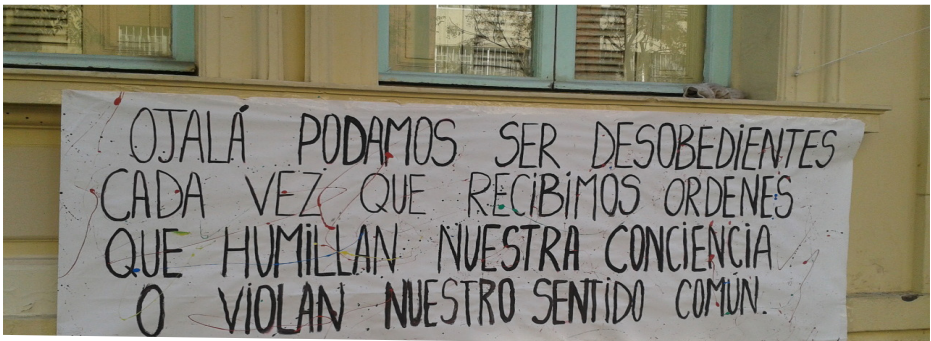 OJALÁ PODAMOS SER DESOBEDIENTES
CADA VEZ QUE RECIBIMOS ORDENES
QUE HUMILLAN NUESTRA CONCIENCIA
O VIOLAN NUESTRO SENTIDO COMÚN.